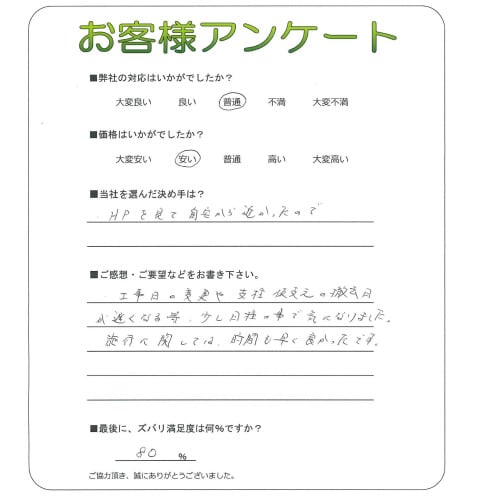 お客様アンケート
■弊社の対応はいかがでしたか?
大変良い 良い 普通 不満 大変不満
■価格はいかがでしたか?
大変安い 安い 普通 高い 大変高い
■当社を選んだ決め手は?
HPを見て自宅から近かったので
■ご感想・ご要望などをお書き下さい。
工事日の変更や支柱 の撤去日
が遅くなる等、少し日程の事で気になりました。
施行に関しては、時間も早く良かったです。
■最後に、ズバリ満足度は何%ですか?
80 %
ご協力頂き、誠にありがとうございました。